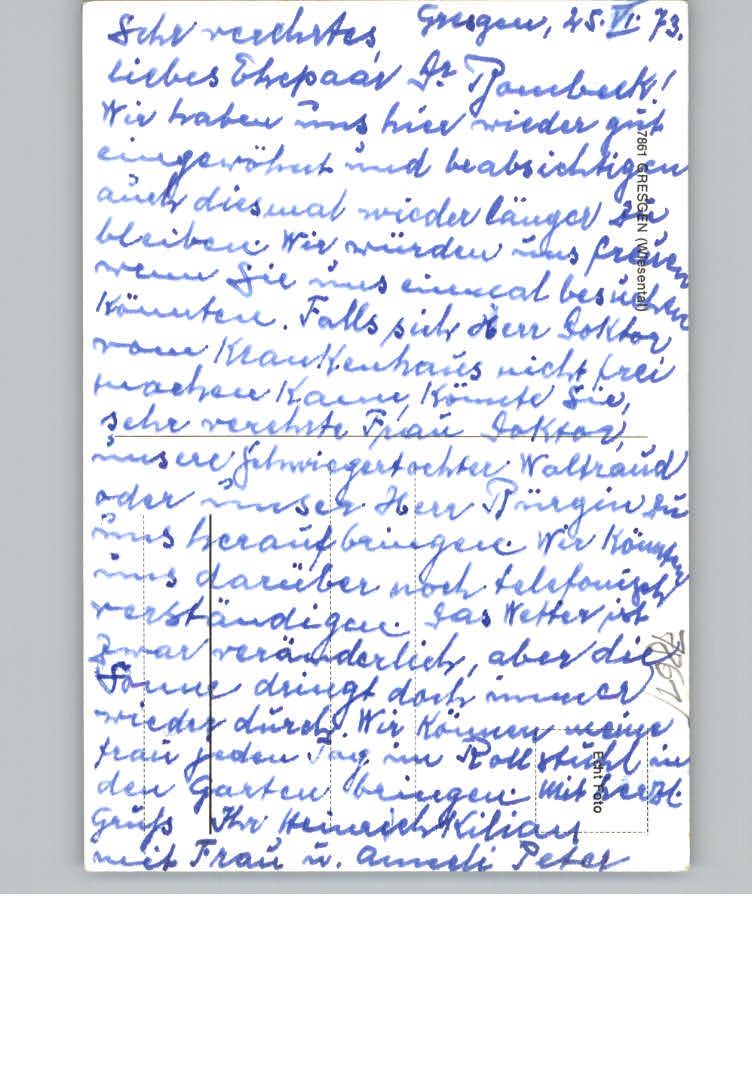 Gresgen, 25. VI. 73.
Sehr verehrtes,
liebes Ehepaar Dr. Rombeck!
Wir haben uns hier wieder gut
eingewöhnt und beabsichtigen
auch diesmal wieder länger zu
bleiben. Wir würden uns freuen
wenn Sie uns einmal besuchen
könnten. Falls sich Herr Doktor
vom Krankenhaus nicht frei
machen kann, könnte Sie,
sehr verehrte Frau Doktor,
unsere Schwiegertochter Waltraud
oder unser Herr Bürgin zu
uns heraufbringen. Wir könnten
uns darüber noch telefonisch
verständigen. Das Wetter ist
zwar veränderlich, aber die
Sonne dringt doch immer
wieder durch. Wir können meine
Frau jeden Tag im Rollstuhl in
den Garten bringen. Mit herzl.
Gruß Ihr Heinrich Kilian
mit Frau u. Peter
7861 GRESGEN (Wiesental)
7861
Echt Foto